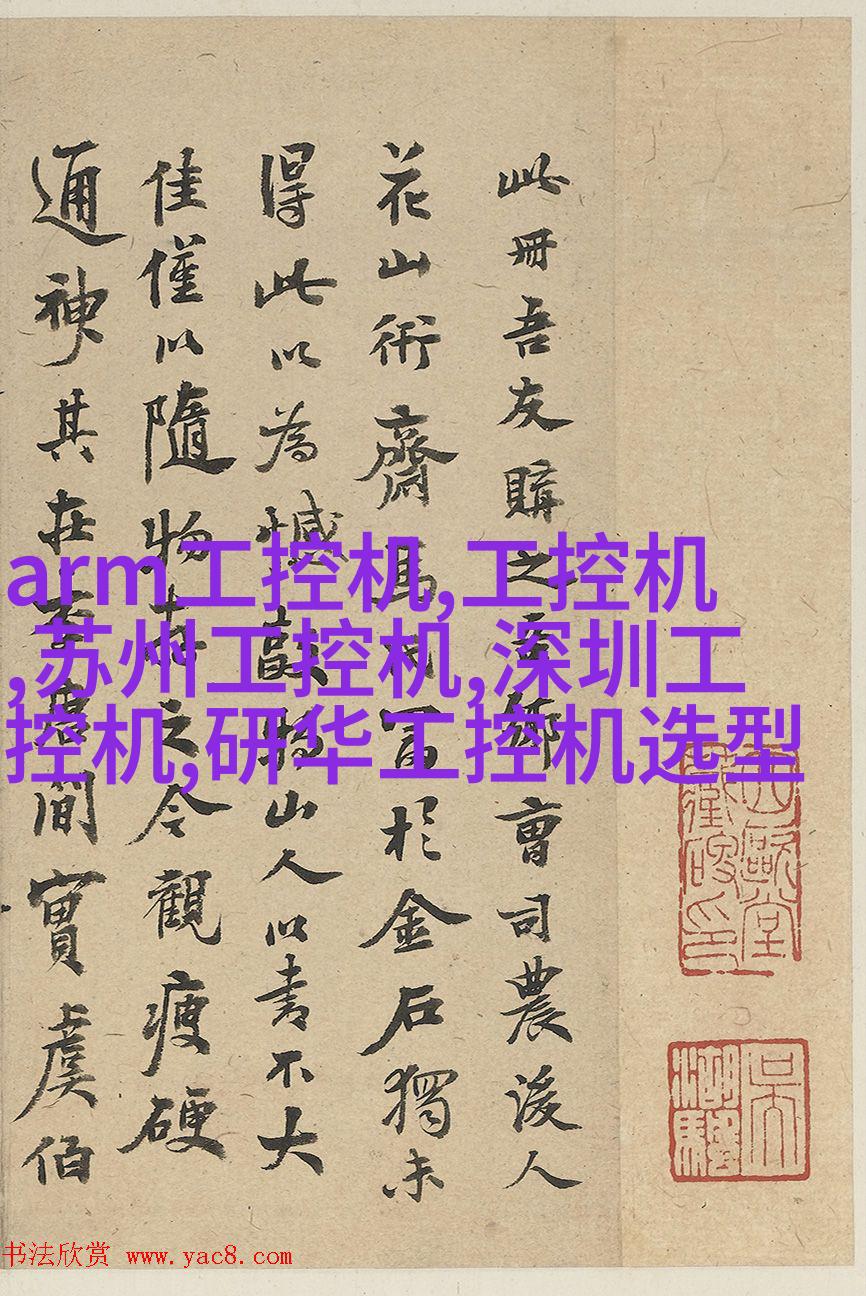 此冊吾友購之鄉曹司農後人
花山衎齋馬氏富於金石獨未
得此以為憾山人以書不大
佳僅以隨物存之今觀瘦硬
通神其在間實虞伯
arm工控机,工控机
,苏州工控机,深圳工
控机,研华工控机选型
书法欣赏 www.yac8.com